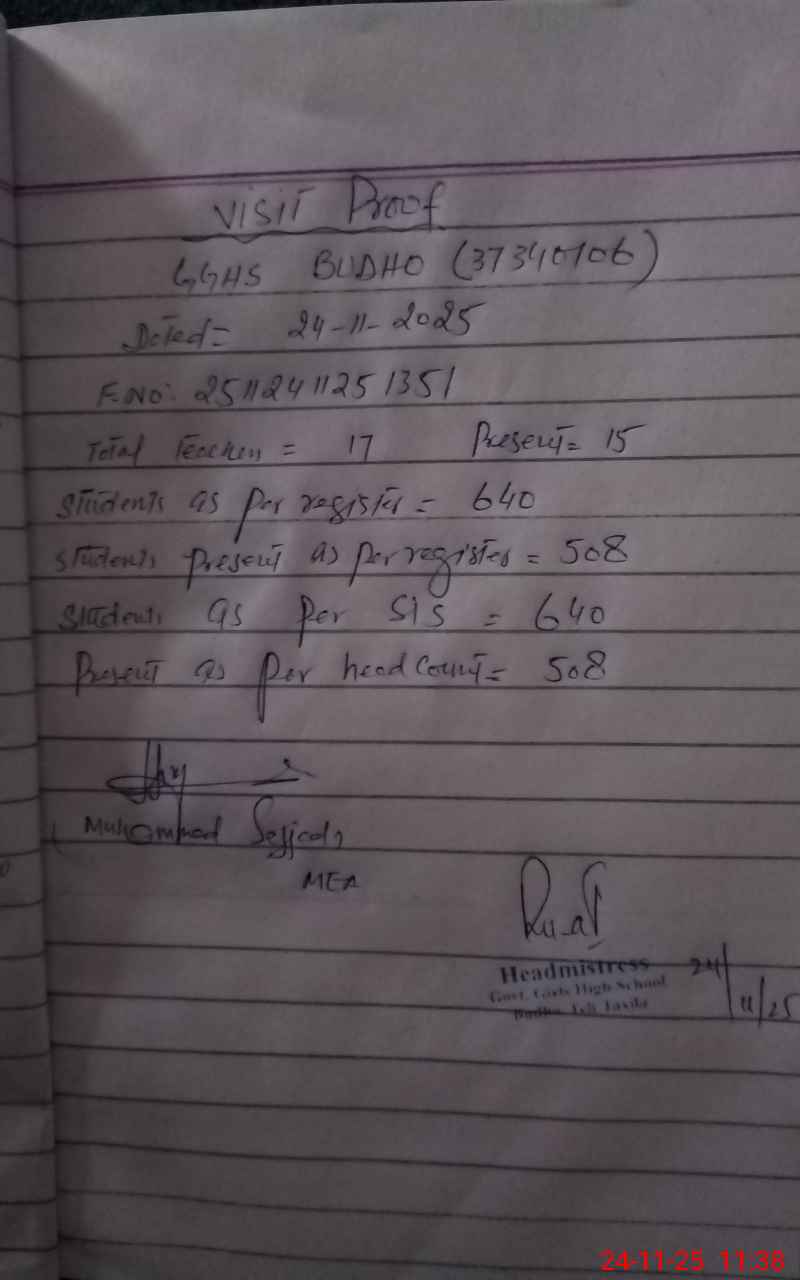 VISIT Proof
GGHS BUDHO (37340106)
Dated= 24-11-2025
F.No: 2511241125 1351
Total Teachers = 17 Present= 15
Students as per register = 640
Students present as per register = 508
Students as per SIS = 640
Present as per head count= 508
Muhammad Sajjad
MEA
Headmistress
Govt. Girls High School
Budho Teh Taxila
24/11/25
24-11-25 11:38